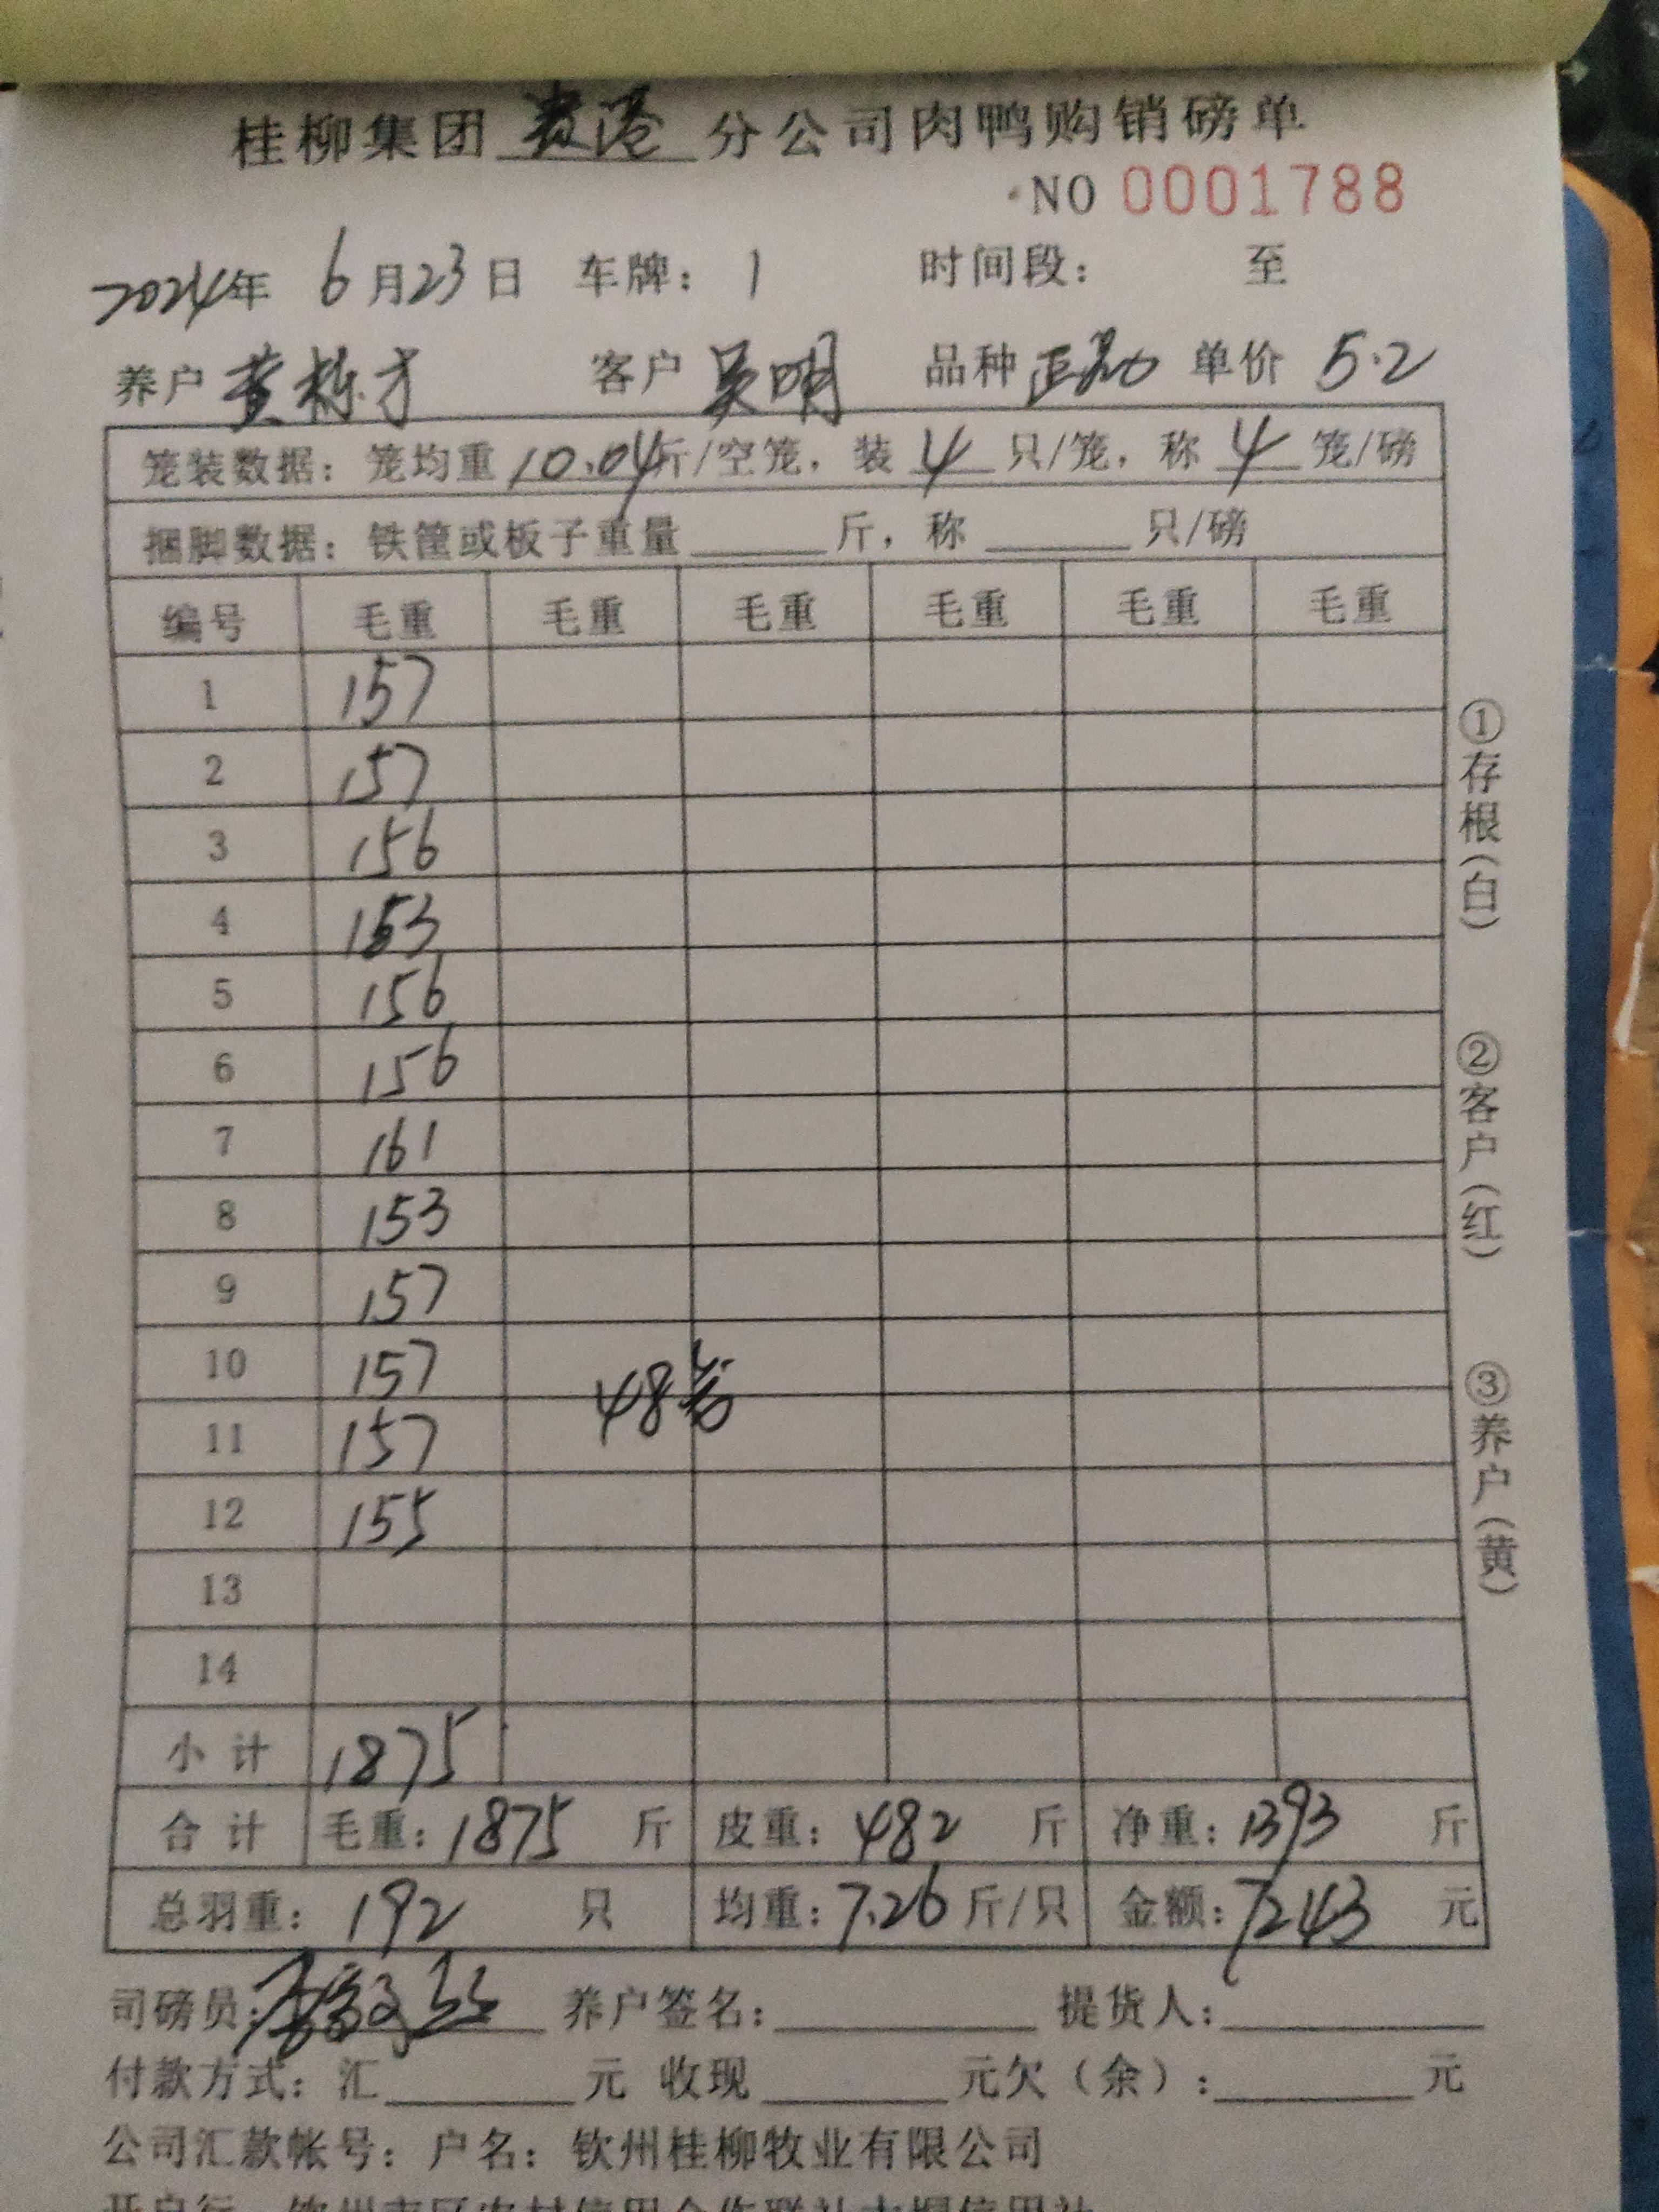 桂柳集团贵港分公司肉鸭购销磅单
NO 0001788
2024年 6月23日 车牌：1 时间段： 至
养户 黄栋才 客户 吴明 品种 正品 单价 5.2
笼装数据：笼均重10.04斤/空笼，装 4 只/笼，称 4 笼/磅
捆脚数据：铁筐或板子重量______斤，称______只/磅
编号 毛重 毛重 毛重 毛重 毛重 毛重
1 157
2 157
3 156
4 153
5 156
6 156
7 161
8 153
9 157
10 157
48笼
11 157
12 155
13
14
小计 1875
合计 毛重：1875 斤 皮重：482 斤 净重：1393 斤
总羽重：192 只 均重：7.26斤/只 金额：7243 元
司磅员： 养户签名：______ 提货人：______
付款方式：汇______元 收现______元欠（余）：______元
公司汇款帐号：户名：钦州桂柳牧业有限公司
①存根（白）
②客户（红）
③养户（黄）